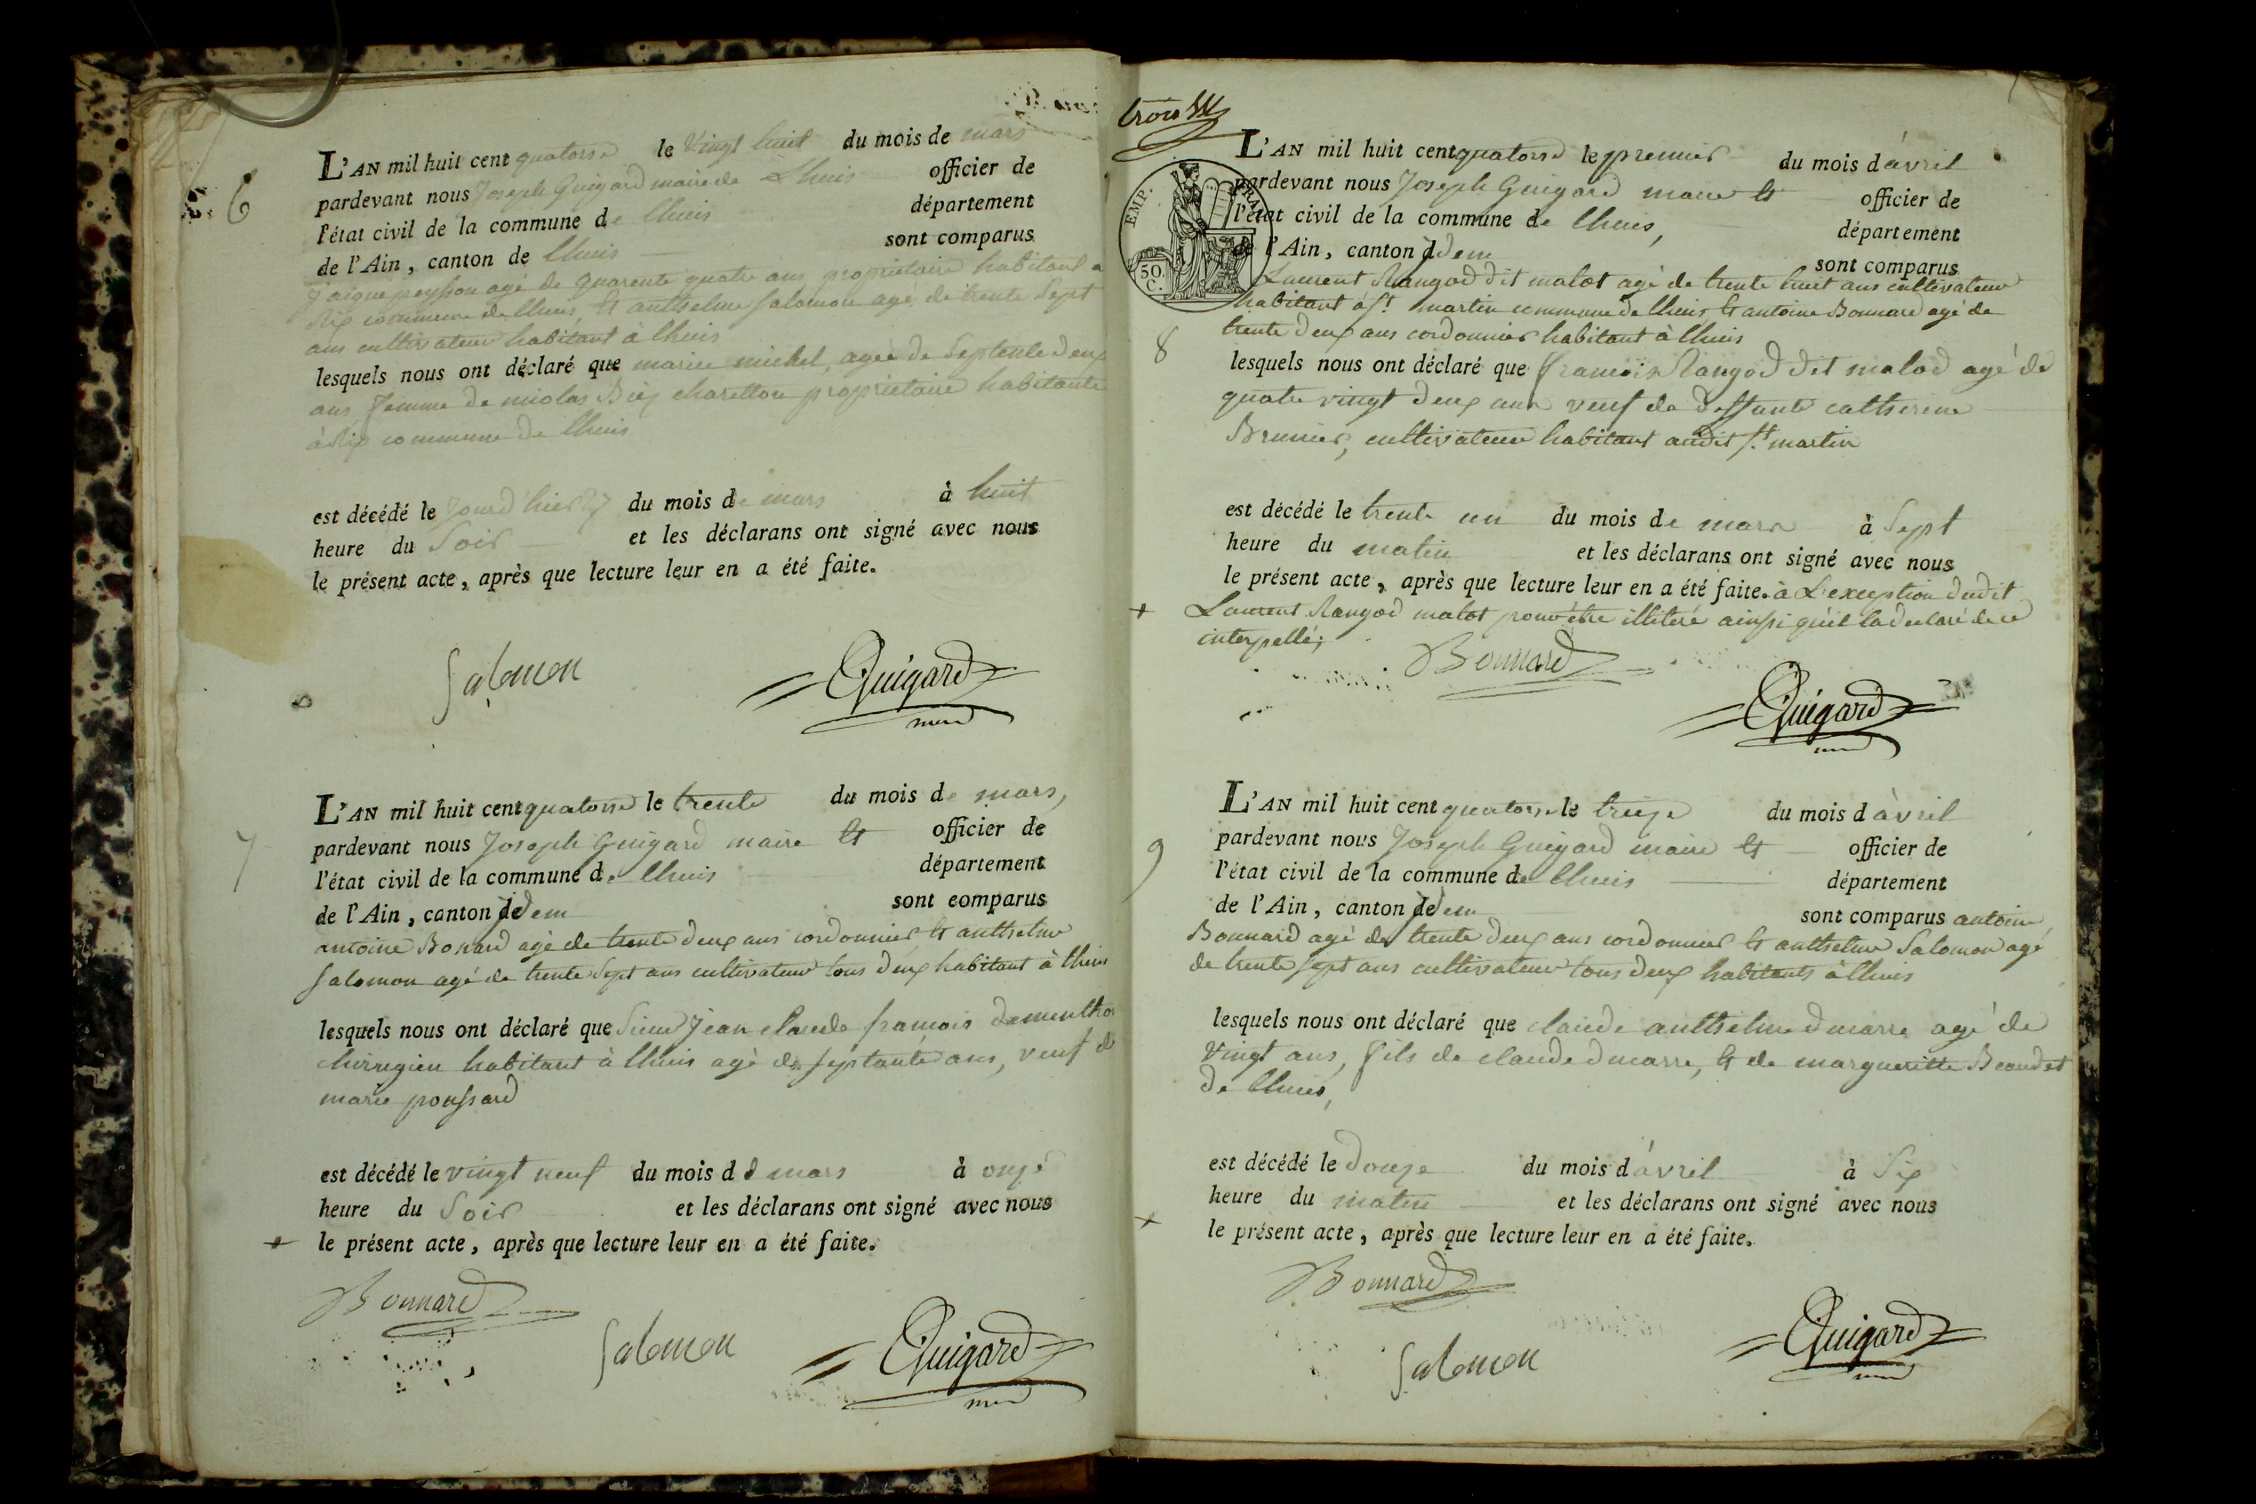 6
L'AN mil huit cent quatorse le vingt huit du mois de mars
pardevant nous Joseph Guigard maire de Lhuis officier de
l'état civil de la commune de lhuis département
de l'Ain, canton de lhuis sont comparus
peysson agé de quarente quatre ans propriétaire habitant a
Rix commune de lhuis, et anthelme Salomon agé de trente Sept
ans cultivateur habitant à lhuis
lesquels nous ont déclaré que marie michel, agée de Septente deux
ans femme de nicolas Biez charetton propriétaire habitante
à Rix commune de lhuis
est décédé le jourd'hier 27 du mois de mars à huit
heure du Soir et les déclarans ont signé avec nous
le présent acte, après que lecture leur en a été faite.
Salomon Guigard
7
L'AN mil huit cent quatorse le trente du mois de mars,
pardevant nous Joseph Guigard maire et officier de
l'état civil de la commune de lhuis département
de l'Ain, canton de idem sont comparus
antoine Bonard agé de trente deux ans cordonnier et anthelme
Salomon agé de trente Sept ans cultivateur tous deux habitant à lhuis
lesquels nous ont déclaré que Sieur jean claude francois dementhon
chirurgien habitant à lhuis agé de septante ans, veuf de
marie poussard
est décédé le vingt neuf du mois de mars à onze
heure du Soir et les déclarans ont signé avec nous
+ le présent acte, après que lecture leur en a été faite.
Bonnard
Salomon Guigard
trois
EMP. FRAN.
50. C.
8
L'AN mil huit cent quatorse le premier du mois d'avril
pardevant nous Joseph Guigard maire et officier de
l'état civil de la commune de lhuis, département
de l'Ain, canton idem sont comparus
Laurent Rangod dit malot agé de trente huit ans cultivateur
habitant à St. martin commune de lhuis et antoine Bonnard agé de
trente deux ans cordonnier habitant à lhuis
lesquels nous ont déclaré que francois Rangod dit malod agé de
quatre vingt deux ans veuf de deffunte catherine
Brunier, cultivateur habitant audit St. martin
est décédé le trente un du mois de mars à Sept
heure du matin et les déclarans ont signé avec nous
le présent acte, après que lecture leur en a été faite. à L'exception dudit
+ Laurent Rangod malot pour être illitéré ainsi qu'il la declaré de ce
interpellé;
Bonnard
Guigard
9
L'AN mil huit cent quatorse le treize du mois d'avril
pardevant nous Joseph Guigard maire et officier de
l'état civil de la commune de lhuis département
de l'Ain, canton de idem sont comparus antoine
Bonnard agé de trente deux ans cordonnier et anthelme Salomon agé
de trente sept ans cultivateur tous deux habitants à lhuis
lesquels nous ont déclaré que claude anthelme dmarre agé de
vingt ans, fils de claude dmarre, et de margueritte Beaudet
de lhuis,
est décédé le douze du mois d'avril à Six
heure du matin et les déclarans ont signé avec nous
+ le présent acte, après que lecture leur en a été faite.
Bonnard
Salomon Guigard